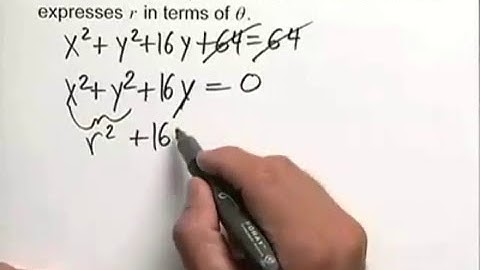 expresses r in terms of θ.
x²+y²+16y+64=64
x²+y²+16y=0
r²+16